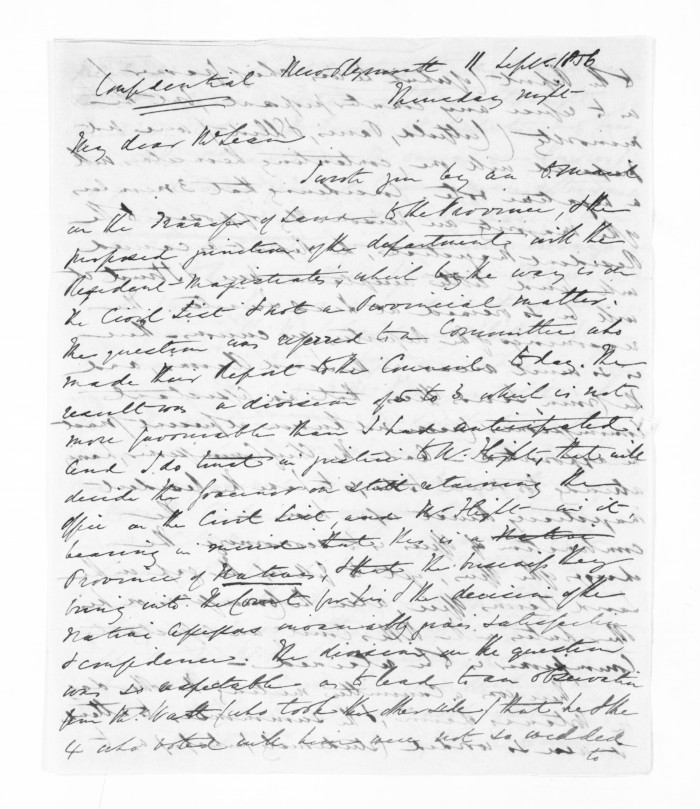 New Plymouth 11 Septr. 1856
Confidential
Thursday night
My dear McLean
I wrote you by an
on the Transfer of Land to the Province, & the
proposed junction of the departments with the
Resident-Magistrates, which by the way is on
the Civil List & not a Provincial matter.
The question was referred to a Committee who
made their Report to the Council today. The
result was a division of 5 to 3 which is not
more favourable than I had anticipated
and I do trust in justice to Mr. Flight, that will
decide the Governor on still retaining the
Office on the Civil List, and Mr Flight in it
bearing in mind that this is a Native
Province of Natives, & that the business they
bring into the Court for him & the decision of the
Native Assessors invariably gives satisfaction
& confidence. The division on the question
was so respectable as to lead to an observation
from Mr. (who took the other side) that he & the
4 who voted with him were not so wedded
to